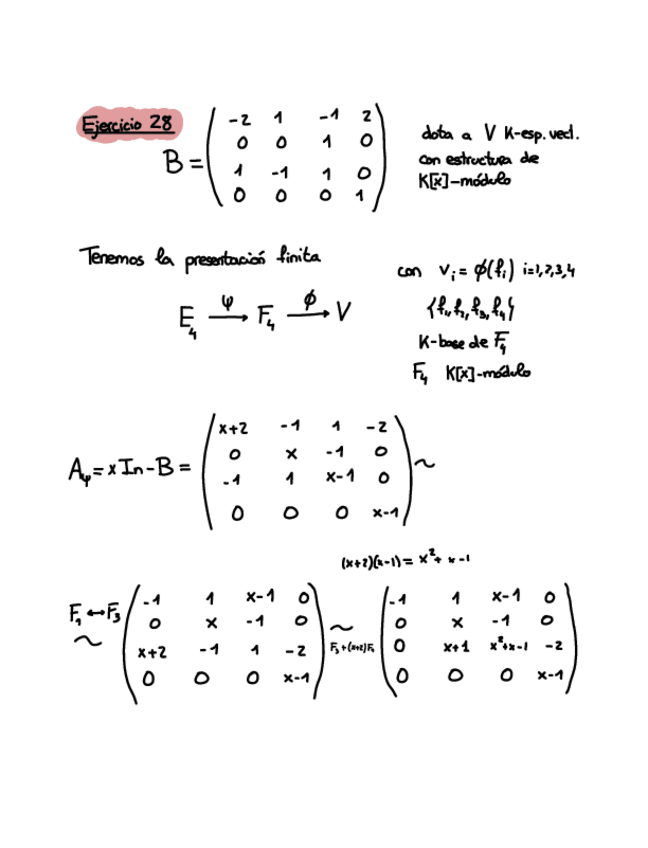 Ejercicio 28
B = ( -2 1 -1 2
0 0 1 0
1 -1 1 0
0 0 0 1 )
dota a V K-esp. vect.
con estructura de
K[x]-módulo
Tenemos la presentación finita
E₄ —ψ→ F₄ —ϕ→ V
con vᵢ = ϕ(fᵢ) i=1,2,3,4
{f₁, f₂, f₃, f₄}
K-base de F₄
F₄ K[x]-módulo
A_ψ = x In - B = ( x+2 -1 1 -2
0 x -1 0
-1 1 x-1 0
0 0 0 x-1 ) ~
(x+2)(x-1) = x² + x - 1
F₁ ↔ F₃ ~ ( -1 1 x-1 0
0 x -1 0
x+2 -1 1 -2
0 0 0 x-1 )
~ F₃+(x+2)F₁
( -1 1 x-1 0
0 x -1 0
0 x+1 x²+x-1 -2
0 0 0 x-1 )